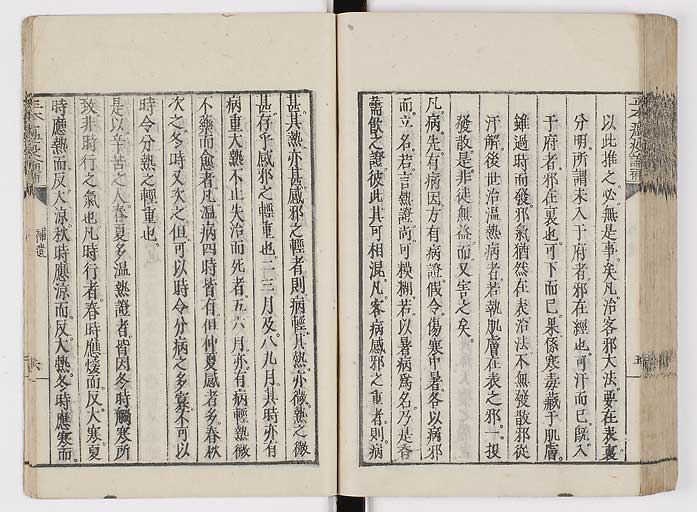 以此推之必無是事矣凡治客邪大法要在表裏
分明所謂未入于府者邪在經也可汗而已既入
于府者邪在裏也可下而已果係寒毒藏于肌膚
雖過時而發邪氣猶然在表治法不無發散邪從
汗解後世治溫熱病者若執肌膚在表之邪一投
發散是非徒無益而又害之矣
凡病先有病因方有病證假令傷寒中暑各以病邪
而立名若言熱證尚可模糊若以暑病爲名乃是香
薷飲之證彼此其可相混凡客病感邪之重者則病
甚其熱亦甚感邪之輕者則病輕其熱亦微熱之微
甚存乎感邪之輕重也二三月及八九月其時亦有
病重大熱不止失治而死者五六月亦有病輕熱微
不藥而愈者凡溫病四時皆有但仲夏感者多春秋
次之冬時又次之但可以時令分病之多寡不可以
時令分熱之輕重也
是以辛苦之人春夏多溫熱證者皆因冬時觸寒所
致非時行之氣也凡時行者春時應煖而反大寒夏
時應熱而反大涼秋時應涼而反大熱冬時應寒而
補遺
六